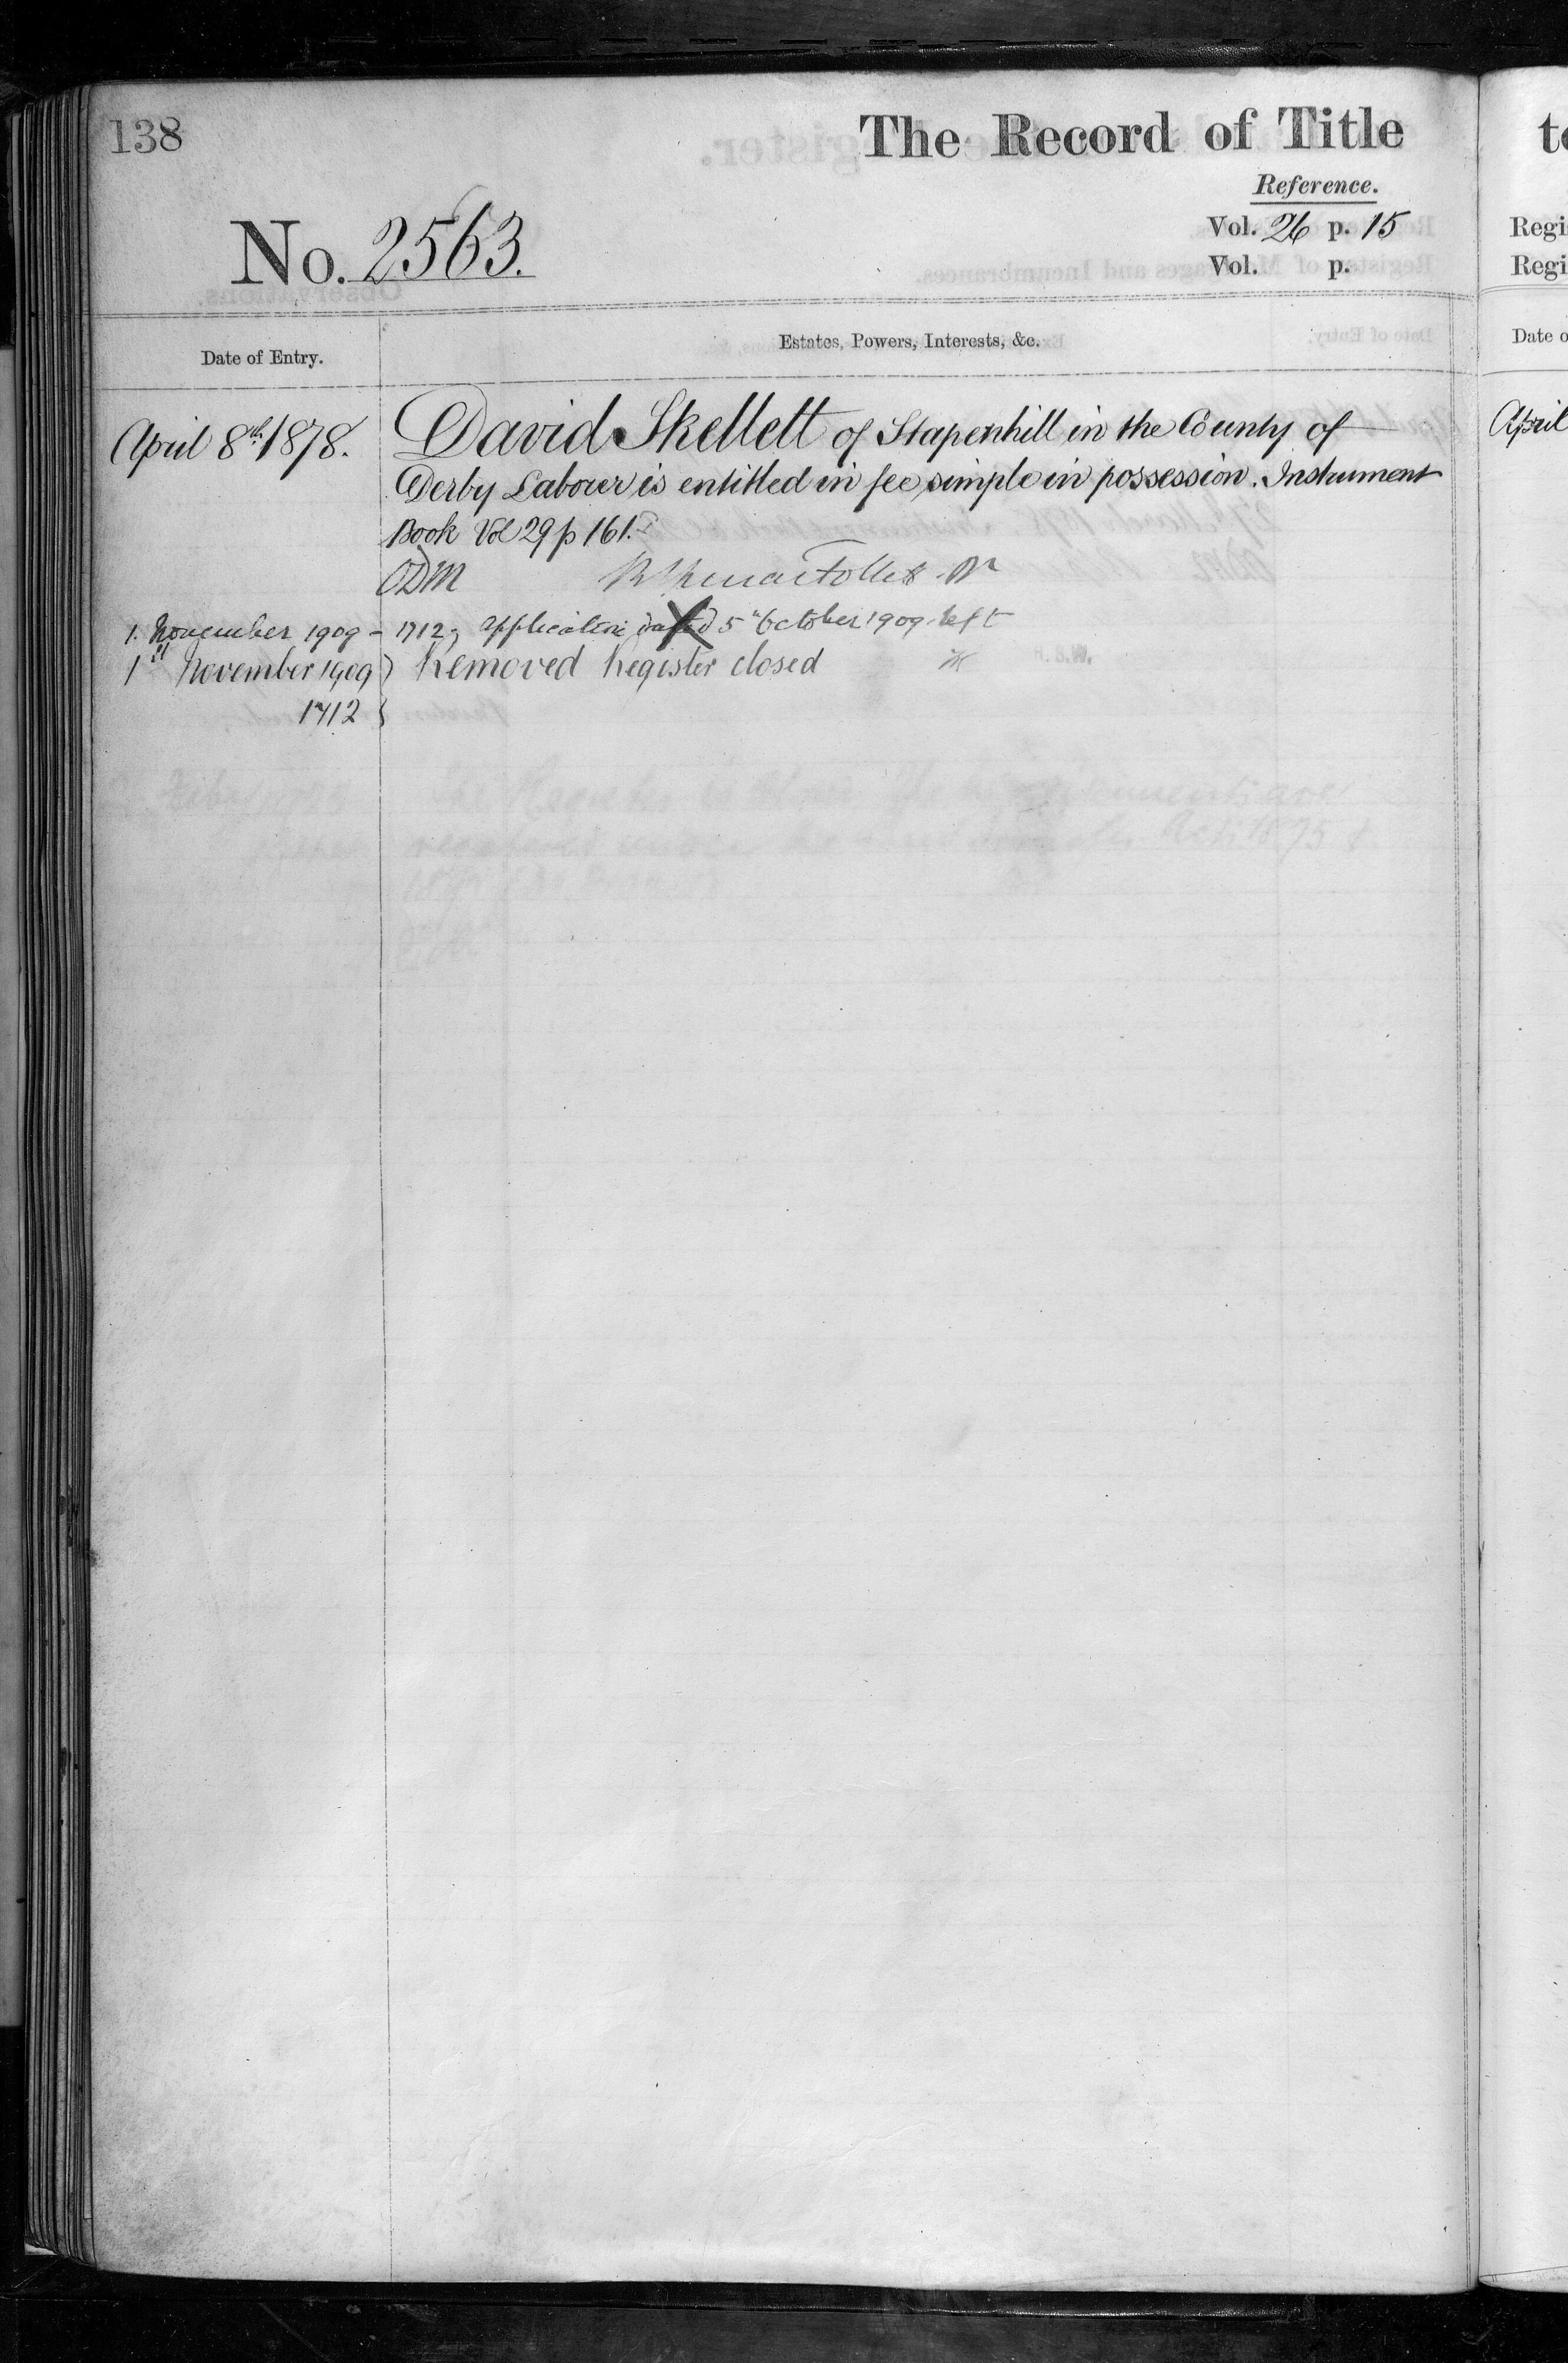 138
The Record of Title
Reference.
No. 2563.
Vol. 26 p. 15
Vol. p.
Date of Entry.
Estates, Powers, Interests, &c.
April 8th 1878.
David Skellett of Stapenhill in the County of
Derby Labourer is entitled in fee simple in possession. Instrument
Book Vol 29 p 161.
ODM
1. November 1909 - 1712, application dated 5th October 1909 left
1st November 1909) Removed Register closed
1712
to
Regi
Regi
Date o
April